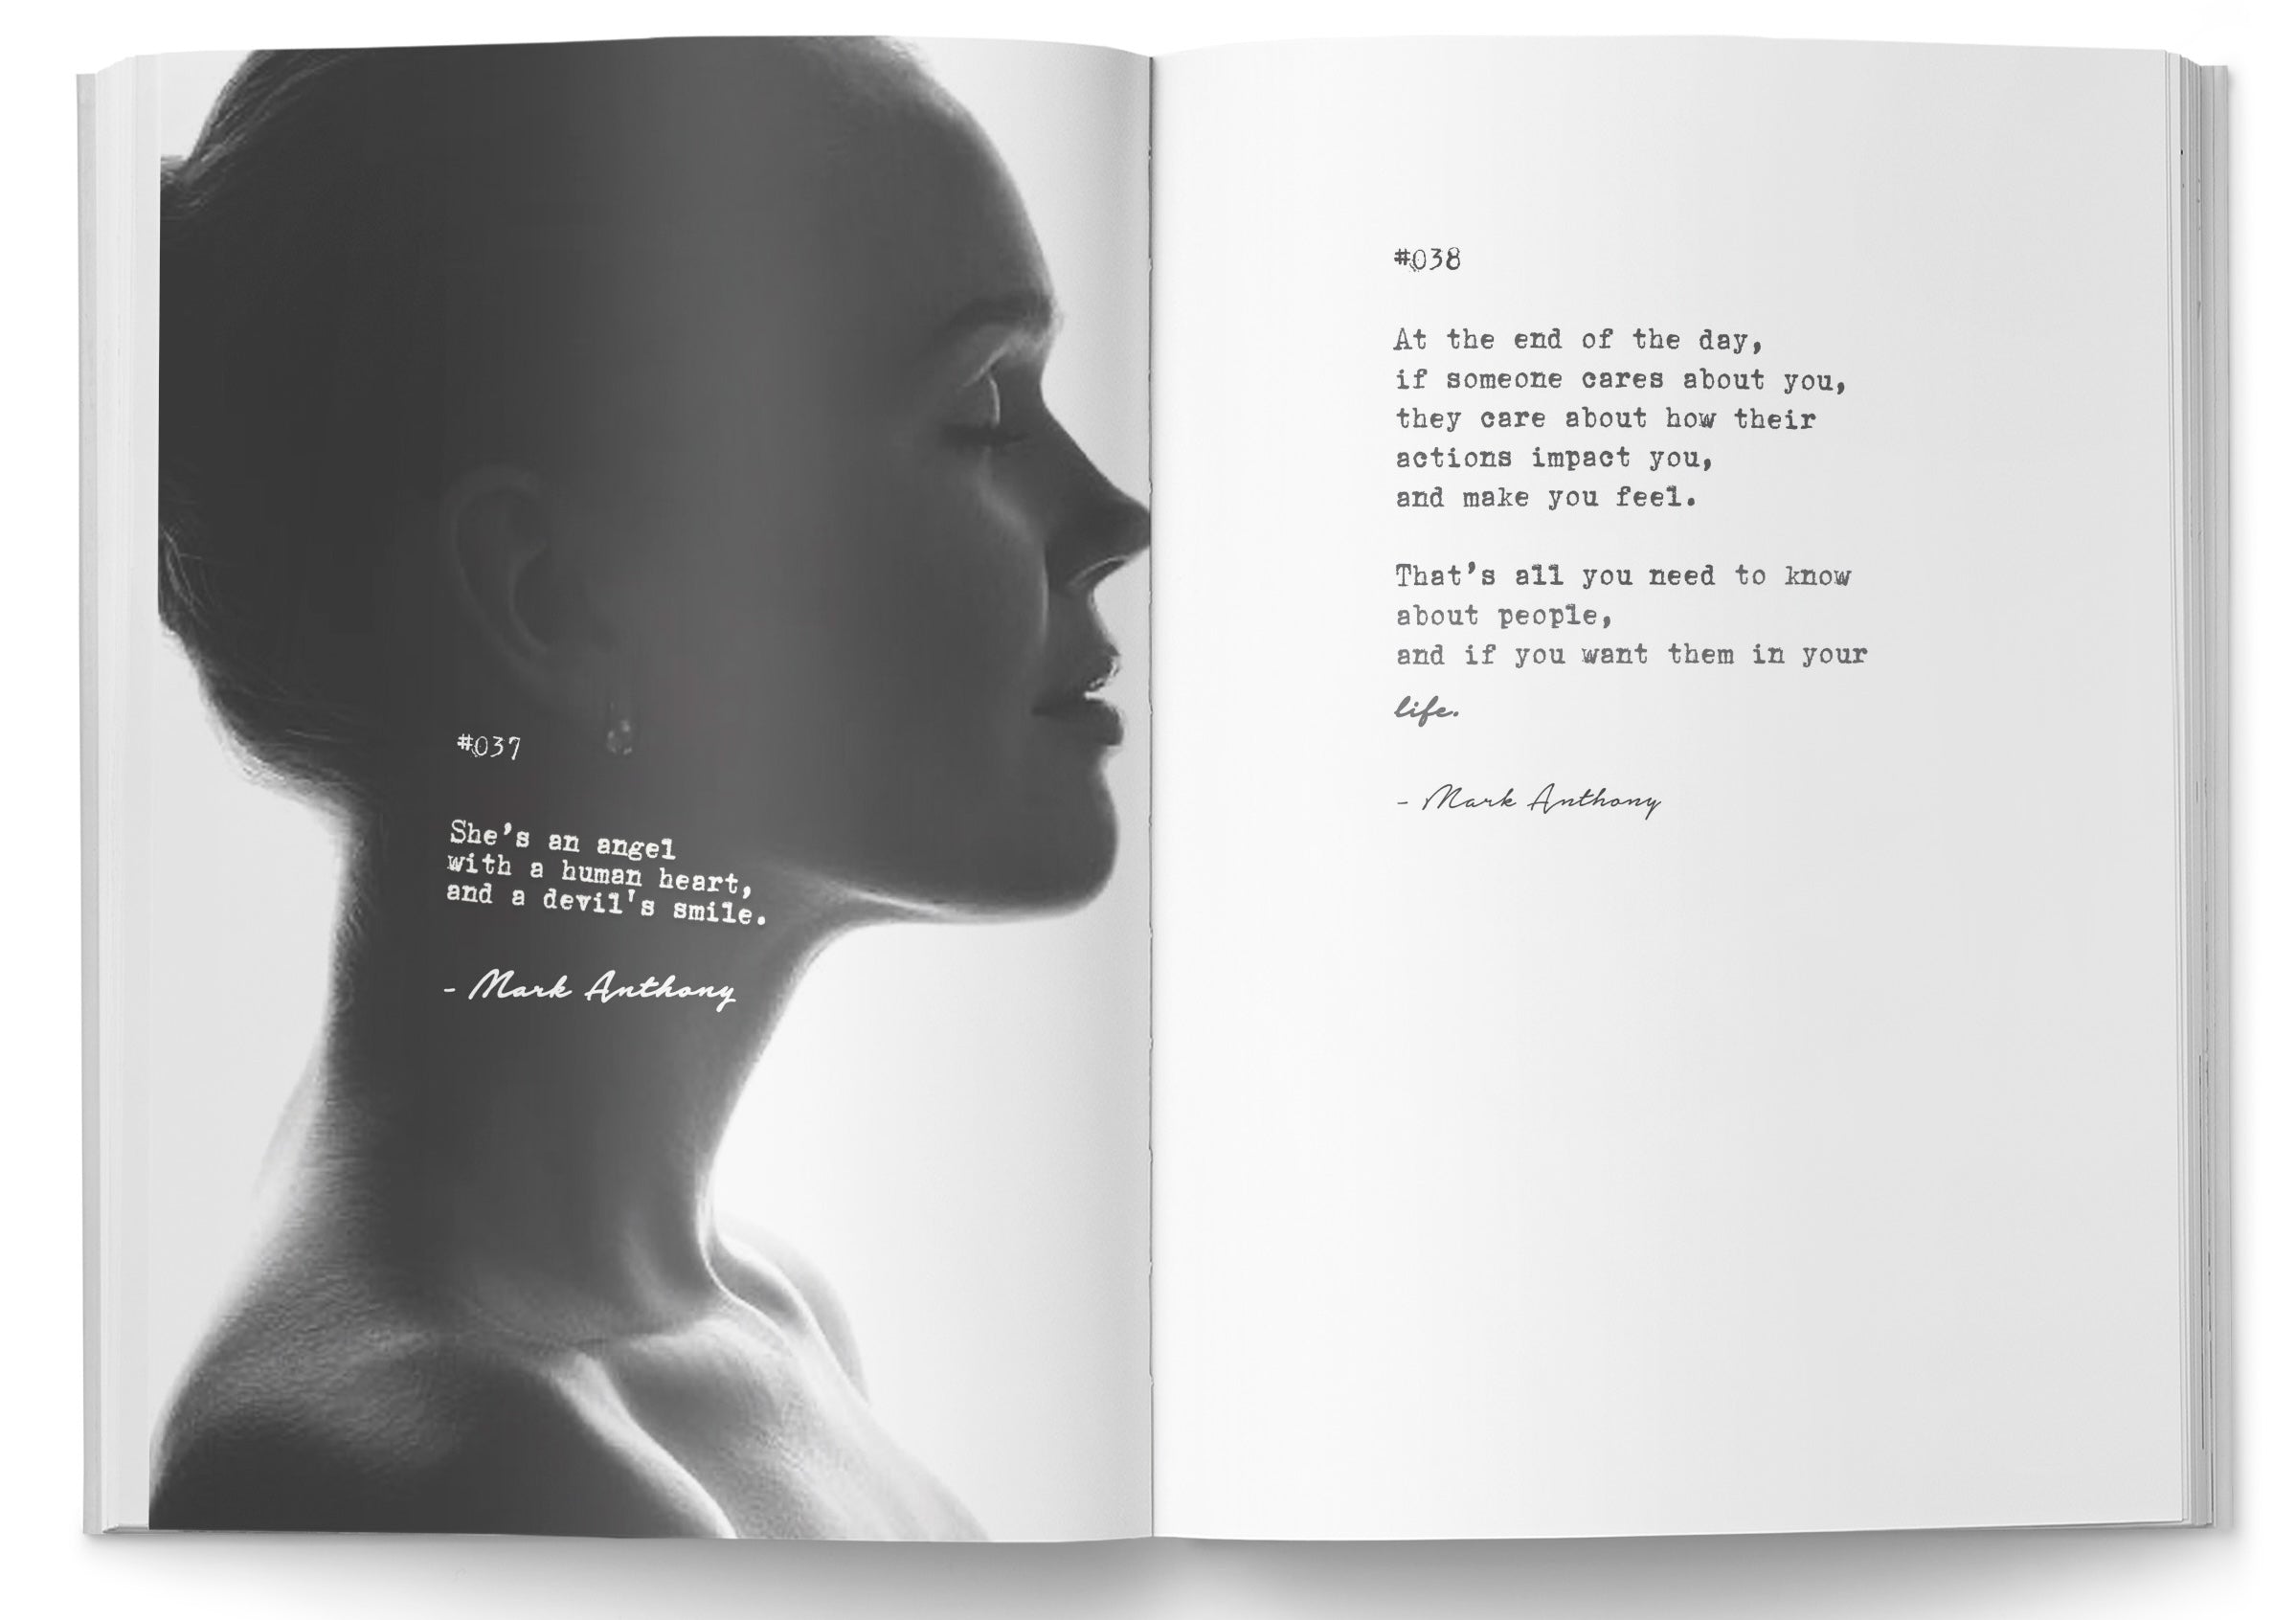 #037
She's an angel
with a human heart,
and a devil's smile.
- Mark Anthony
#038
At the end of the day,
if someone cares about you,
they care about how their
actions impact you,
and make you feel.
That's all you need to know
about people,
and if you want them in your
life.
- Mark Anthony